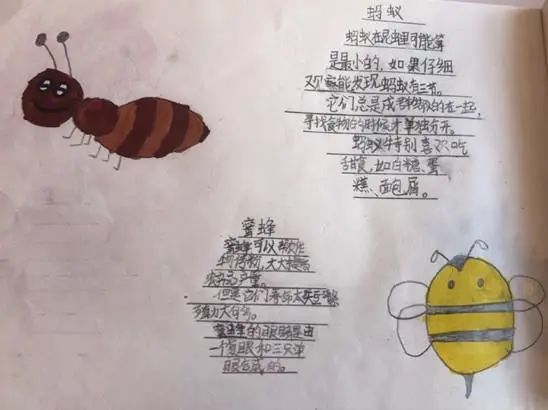 蚂蚁
蚂蚁在昆虫里可能算
是最小的，如果仔细
观察就能发现蚂蚁有三节。
它们总是成群结队的在一起，
寻找食物的时候才单独分开。
蚂蚁特别喜欢吃
甜食，如白糖、蛋
糕、面包屑。
蜜蜂
蜜蜂可以帮农作
物传粉，大大提高
农产品产量。
但是它们
蜜蜂的眼睛是由
一个复眼和三只单
眼组成的。